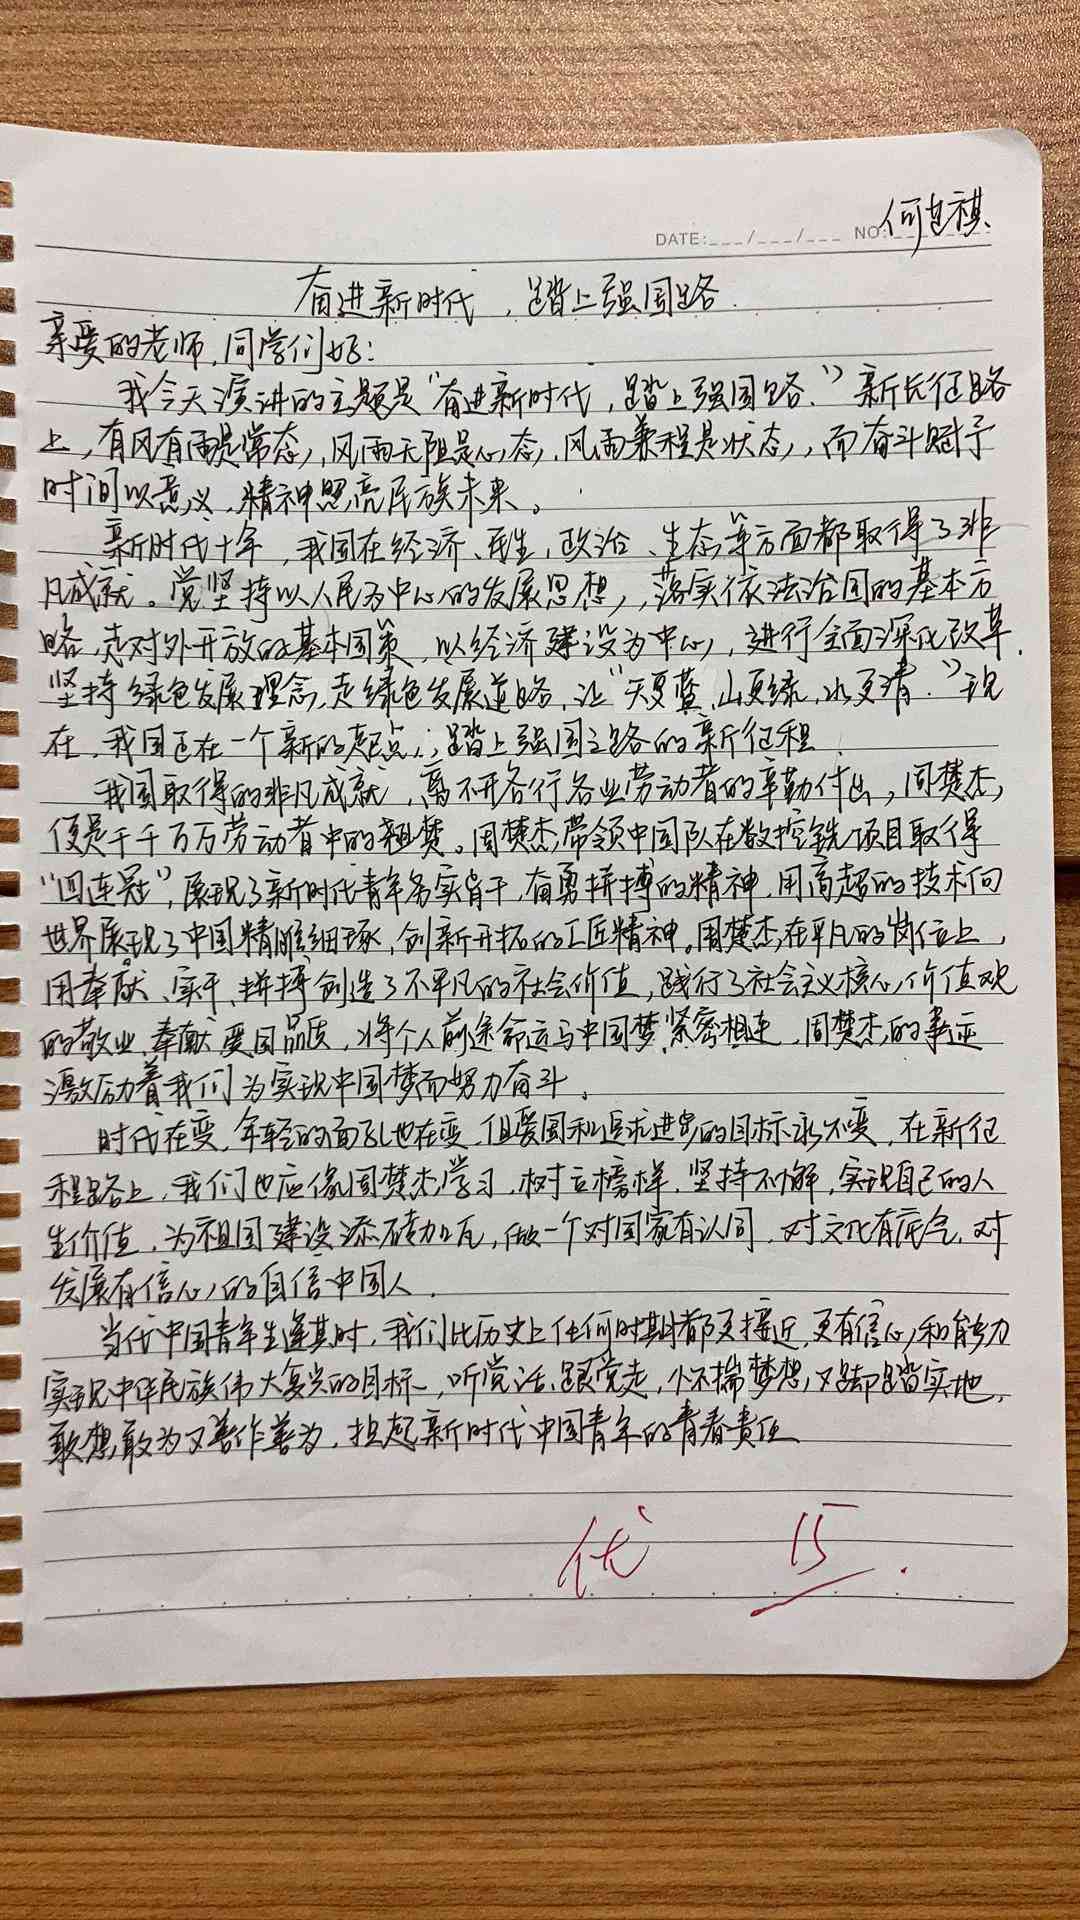 何 祺
DATE:___/___/___ NO:
奋进新时代,踏上强国路.
亲爱的老师,同学们好:
我今天演讲的主题是“奋进新时代,踏上强国路.”新长征路
上,有风有雨是常态,风雨无阻是心态,风雨兼程是状态,而奋斗赋予
时间以意义,精神照亮民族未来。
新时代十年,我国在经济、民生、政治、生态等方面都取得了非
凡成就。党坚持以人民为中心的发展思想,落实依法治国的基本方
略,走对外开放的基本国策,以经济建设为中心,进行全面深化改革.
坚持绿色发展理念,走绿色发展道路,让“天更蓝,山更绿,水更清.”现
在,我国正在一个新的起点,踏上强国之路的新征程.
我国取得的非凡成就,离不开各行各业劳动者的辛勤付出,周楚杰,
便是千千万万劳动者中的翘楚。周楚杰带领中国队在数控铣项目取得
“四连冠”,展现了新时代青年务实肯干,奋勇拼搏的精神,用高超的技术向
世界展现了中国精雕细琢,创新开拓的工匠精神。周楚杰在平凡的岗位上,
用奉献、实干、拼搏创造了不平凡的社会价值,践行了社会主义核心价值观
的敬业、奉献、爱国品质,将个人前途命运与中国梦紧密相连,周楚杰的事迹
激励着我们为实现中国梦而努力奋斗.
时代在变,年轻的面孔也在变,但爱国和追求进步的目标永不变,在新征
程路上,我们也应像周楚杰学习,树立榜样,坚持不懈,实现自己的人
生价值,为祖国建设添砖加瓦,做一个对国家有认同,对文化有底气,对
发展有信心的自信中国人.
当代中国青年生逢其时,我们比历史上任何时期都更接近,更有信心和能力
实现中华民族伟大复兴的目标,听党话、跟党走,怀揣梦想又脚踏实地,
敢想敢为又善作善为,担起新时代中国青年的青春责任
优 15.